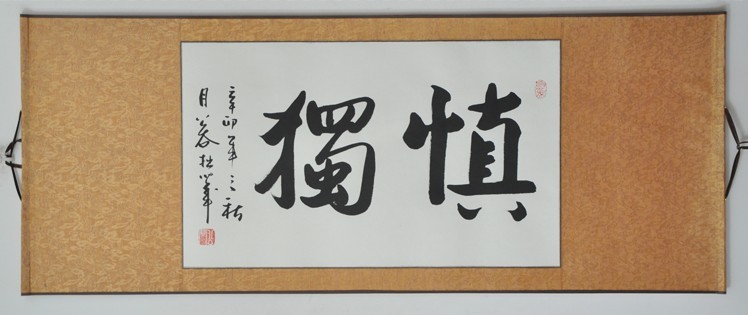 慎獨
辛卯年之秋
月蓉拙筆